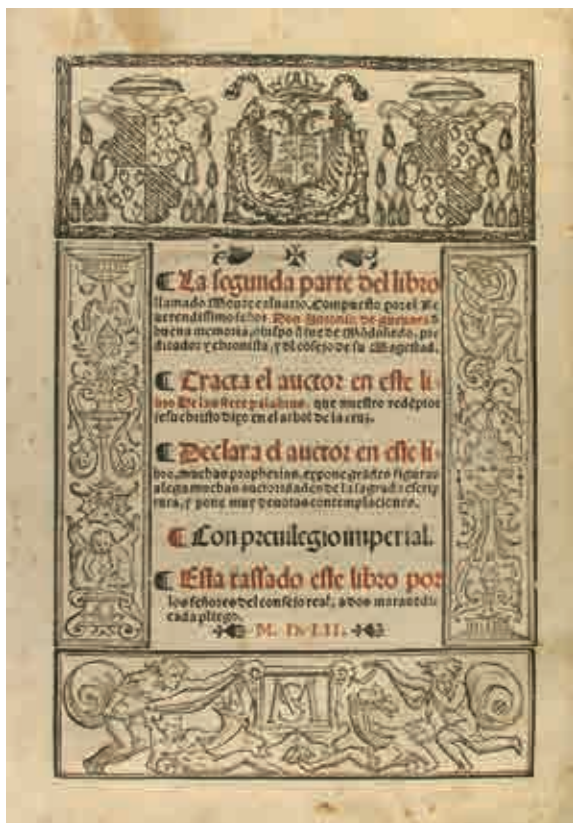 ¶ La segunda parte del libro
llamado Monte caluario. Compuesto por el Re
uerendissimo señor Don Antonio de gueuara d
buena memoria, obispo que fue de Mõdoñedo, pre
dicador y chronista, y dl cõsejo de su Magestad.
¶ Tracta el auctor en este li-
bro De las siete palabras, que nuestro redẽptor
jesu christo dixo en el arbol de la cruz.
¶ Declara el auctor en este li-
bro, muchas prophecias, expone grãdes figuras
alega muchas auctoridades de la sagrada escrip
tura, y pone muy deuotas contemplaciones.
¶ Con preuilegio imperial.
¶ Esta tassado este libro por
los señores del consejo real, a dos marauedis
cada pliego.
M. D. LII.